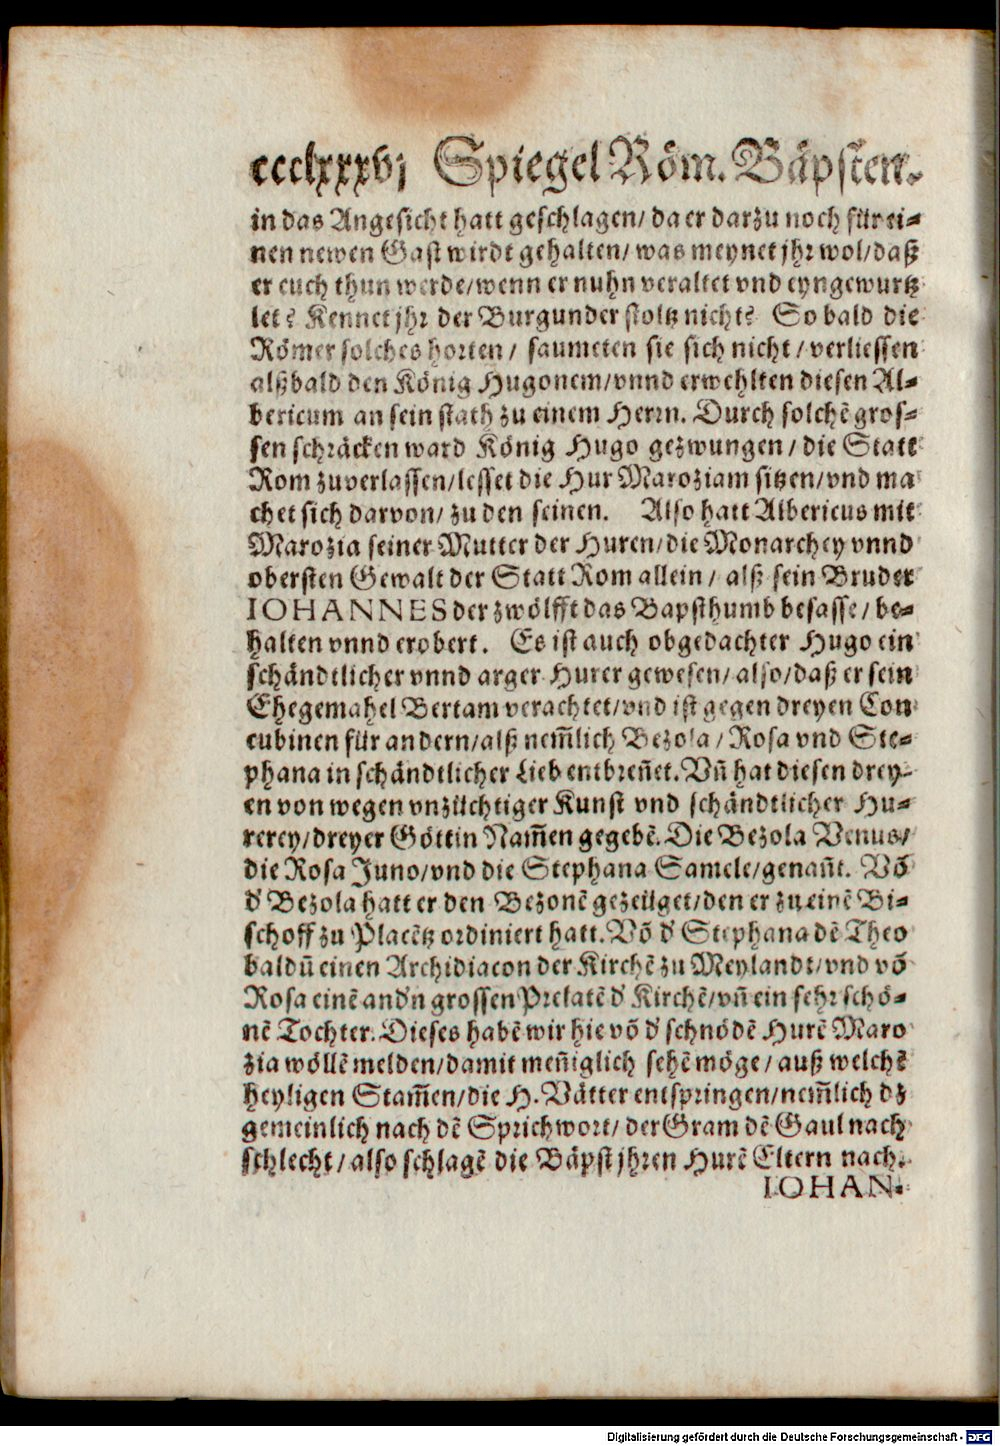 cccclxxxvj Spiegel Röm. Bäpsten.
in das Angesicht hatt geschlagen/ da er darzu noch für ei⸗
nen newen Gast wirdt gehalten/ was meynet jhr wol/ daß
er euch thun werde/ wenn er nuhn veraltet vnd eyngewurtz
let? Kennet jhr der Burgunder stoltz nicht? So bald die
Römer solches horten/ saumeten sie sich nicht/ verliessen
alßbald den König Hugonem/ vnnd erwehlten diesen Al⸗
bericum an sein stath zu einem Herrn. Durch solchē gros⸗
sen schräcken ward König Hugo gezwungen/ die Statt
Rom zuverlassen/ lesset die Hur Maroziam sitzen/ vnd ma
chet sich darvon/ zu den seinen. Also hatt Albericus mit
Marozia seiner Mutter der Huren/ die Monarchey vnnd
obersten Gewalt der Statt Rom allein/ alß sein Bruder
IOHANNES der zwölfft das Bapsthumb besasse/ be⸗
halten vnnd erobert. Es ist auch obgedachter Hugo ein
schändtlicher vnnd arger Hurer gewesen/ also/ daß er sein
Ehegemahel Bertam verachtet/ vnd ist gegen dreyen Con
cubinen für andern/ alß nem̄lich Bezola/ Rosa vnd Ste⸗
phana in schändtlicher Lieb entbren̄et. Vn̄ hat diesen drey⸗
en von wegen vnzüchtiger Kunst vnd schändtlicher Hu⸗
rerey/ dreyer Göttin Nam̄en gegebē. Die Bezola Venus/
die Rosa Juno/ vnd die Stephana Samele/ genan̄t. Vō
d' Bezola hatt er den Bezonē gezeüget/ den er zu einē Bi⸗
schoff zu Placētz ordiniert hatt. Vō d' Stephana dē Theo
baldū einen Archidiacon der Kirchē zu Meylandt/ vnd vō
Rosa einē and'n grossen Prelatē d' Kirchē/ vn̄ ein sehr schö⸗
nē Tochter. Dieses habē wir hie vō d' schnödē Hurē Maro
zia wöllē melden/ damit men̄iglich sehē möge/ auß welchē
heyligen Stam̄en/ die H. Vätter entspringen/ nem̄lich dz
gemeinlich nach dē Sprichwort/ der Gram dē Gaul nach
schlecht/ also schlagē die Bäpst jhren Hurē Eltern nach.
IOHAN⸗
Digitalisierung gefördert durch die Deutsche Forschungsgemeinschaft - DFG